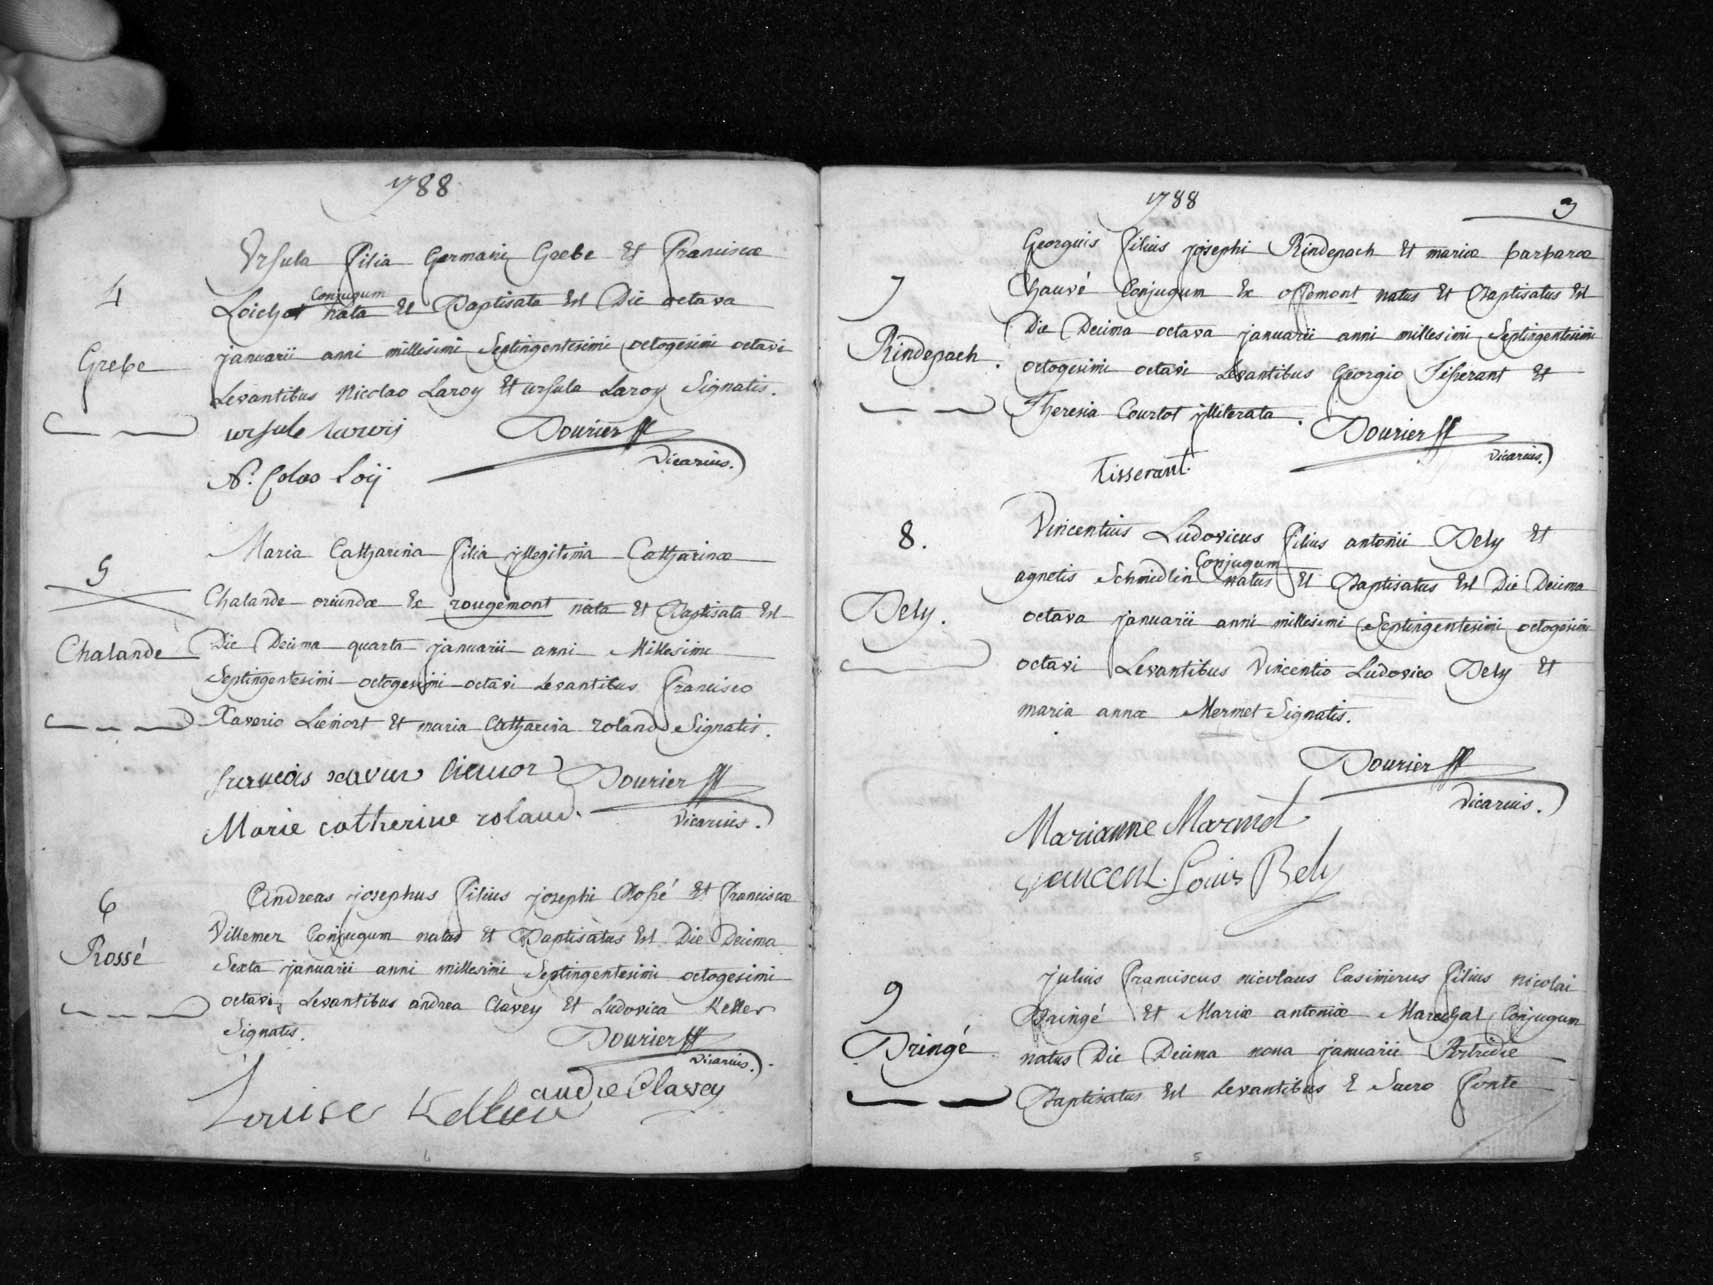 1788
4
Grebe
Ursula filia Germani Grebe Et Franciscæ
Conjugum
Loichot nata Et Baptisata Est Die octava
januarii anni millesimi Septingentesimi octogesimi octavi
Levantibus Nicolao Laroy Et ursula Laroy Signatis.
ursule
Dourier
Vicarius.
5
Chalande
Maria Catharina filia jllegitima Catharinæ
Chalande oriundæ Ex rougemont nata Et Baptisata Est
Die Decima quarta januarii anni Millesimi
Septingentesimi octogesimi octavi Levantibus Francisco
Xaverio Lienort Et maria Catharina roland Signatis.
françois xavier
Dourier
Vicarius.
Marie catherine roland.
6
Rossé
Andreas josephus filius josephi Rossé Et Franciscæ
Villemer Conjugum natus Et Baptisatus Est Die Decima
Sexta januarii anni millesimi Septingentesimi octogesimi
octavi, Levantibus andrea Clavey Et Ludovica Keller
Signatis.
Dourier
Vicarius.
andre Clavey
Louise Kelleur
1788
3
7
Rindepach.
Georgius filius josephi Rindepach Et mariæ barbaræ
Chauvé Conjugum Ex offemont natus Et Baptisatus Est
Die Decima octava januarii anni millesimi Septingentesimi
octogesimi octavi Levantibus Georgio Tisserant Et
Theresia Courtot jlliterata.
Dourier
Vicarius.
tisserant.
8.
Bely.
Vincentius Ludovicus filius antonii Bely Et
Conjugum
agnetis Schmidlin natus Et Baptisatus Est Die Decima
octava januarii anni millesimi Septingentesimi octogesimi
octavi Levantibus Vincentio Ludovico Bely Et
maria anna Mermet Signatis.
Dourier
Vicarius.
Marianne Marmet
Louis Bely
9
Bringé
julius Franciscus nicolaus Casimirus filius nicolai
Bringé Et Mariæ antoniæ Marechal Conjugum
natus Die Decima nona januarii Postridie
Baptisatus Est Levantibus E Sacro fonte
5